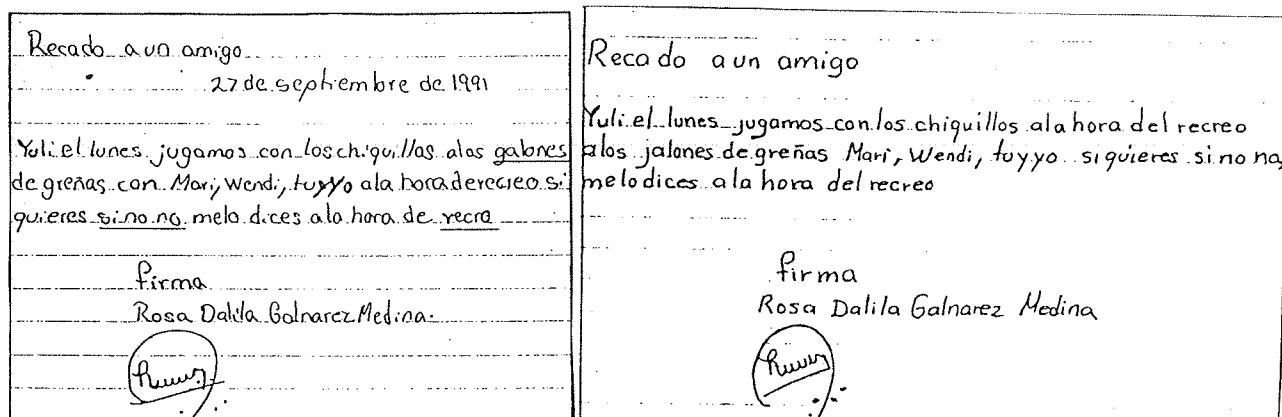 Recado a un amigo
27 de septiembre de 1991
Yuli el lunes jugamos con los chiquillos alas galones
de greñas con Mari, Wendi, tu y yo ala hora derecreo si
quieres si no no melo dices ala hora de recra
firma
Rosa Dalila Galnarez Medina.
Recado a un amigo
Yuli el lunes jugamos con los chiquillos ala hora del recreo
alos jalones de greñas Mari, Wendi, tu y yo si quieres si no no,
melo dices a la hora del recreo
firma
Rosa Dalila Galnarez Medina